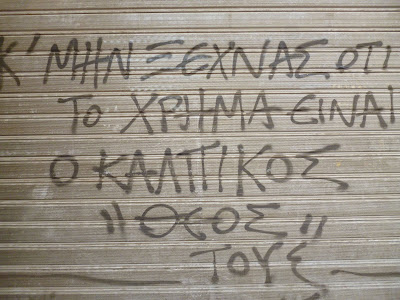 Κ' ΜΗΝ ΞΕΧΝΑΣ ΟΤΙ
ΤΟ ΧΡΗΜΑ ΕΙΝΑΙ
Ο ΚΑΛΠΙΚΟΣ
"ΘΕΟΣ"
ΤΟΥΣ